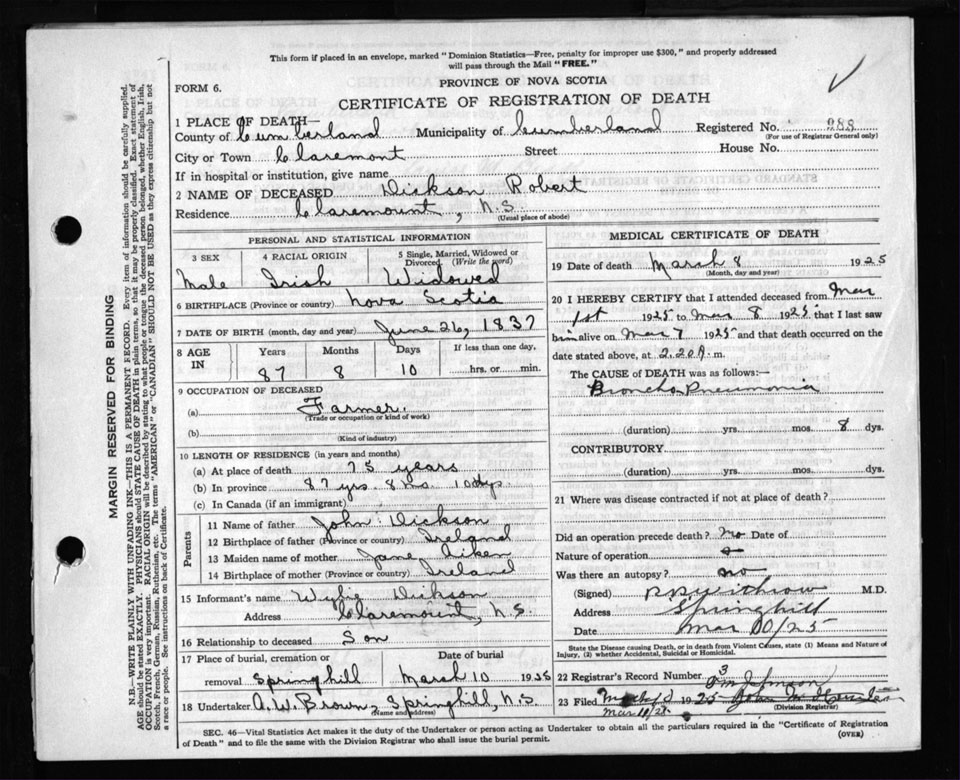 This form if placed in an envelope, marked "Dominion Statistics—Free, penalty for improper use $300," and properly addressed
will pass through the Mail "FREE."
PROVINCE OF NOVA SCOTIA
FORM 6.
CERTIFICATE OF REGISTRATION OF DEATH
1 PLACE OF DEATH—
County of Cumberland Municipality of Cumberland Registered No. 288
(For use of Registrar General only)
City or Town Claremont Street House No.
If in hospital or institution, give name
2 NAME OF DECEASED Dickson Robert
Residence Claremount, N.S.
(Usual place of abode)
PERSONAL AND STATISTICAL INFORMATION
3 SEX 4 RACIAL ORIGIN 5 Single, Married, Widowed or Divorced (Write the word)
Male Irish Widowed
6 BIRTHPLACE (Province or country) Nova Scotia
7 DATE OF BIRTH (month, day and year) June 26, 1837
8 AGE IN Years Months Days If less than one day,
87 8 10 hrs. or min.
9 OCCUPATION OF DECEASED
(a) Farmer.
(Trade or occupation or kind of work)
(b)
(Kind of industry)
10 LENGTH OF RESIDENCE (in years and months)
(a) At place of death 75 years
(b) In province 87 yrs. 8 mo. 10 dys.
(c) In Canada (if an immigrant)
Parents
11 Name of father John Dickson
12 Birthplace of father (Province or country) Ireland
13 Maiden name of mother Jane Aiken
14 Birthplace of mother (Province or country) Ireland
15 Informant's name Wylie Dickson
Address Claremount, N.S.
16 Relationship to deceased Son
17 Place of burial, cremation or Date of burial
removal Springhill March 10 1925
18 Undertaker A.W. Brown, Springhill, N.S.
(Name and address)
MEDICAL CERTIFICATE OF DEATH
19 Date of death March 8 1925
(Month, day and year)
20 I HEREBY CERTIFY that I attended deceased from Mar
1st 1925 to Mar 8 1925 that I last saw
him alive on Mar 7 1925 and that death occurred on
date stated above, at 2.20 m.
The CAUSE of DEATH was as follows:—
Broncho Pneumonia
(duration) yrs. mos. 8 dys.
CONTRIBUTORY
(duration) yrs. mos. dys.
21 Where was disease contracted if not at place of death?
Did an operation precede death? no Date of
Nature of operation
Was there an autopsy? no
(Signed) M.D.
Address Springhill
Date Mar 10/25
State the Disease causing Death, or in death from Violent Causes, state (1) Means and Nature of
Injury, (2) whether Accidental, Suicidal or Homicidal.
22 Registrar's Record Number 3
23 Filed 1925
Mar 11/25 (Division Registrar)
SEC. 46—Vital Statistics Act makes it the duty of the Undertaker or person acting as Undertaker to obtain all the particulars required in the "Certificate of Registration
of Death" and to file the same with the Division Registrar who shall issue the burial permit. (OVER)
MARGIN RESERVED FOR BINDING
N.B.—WRITE PLAINLY WITH UNFADING INK—THIS IS A PERMANENT RECORD. Every item of information should be carefully supplied.
AGE should be stated EXACTLY. PHYSICIANS should STATE CAUSE OF DEATH in plain terms, so that it may be properly classified. Exact statement of
OCCUPATION is very important. RACIAL ORIGIN will be described by stating to what people or tongue the deceased person belonged, whether English, Irish,
Scotch, French, German, Russian, Ruthenian, etc. The terms "AMERICAN" or "CANADIAN" SHOULD NOT BE USED as they express citizenship but not
a race or people. See instructions on back of Certificate.